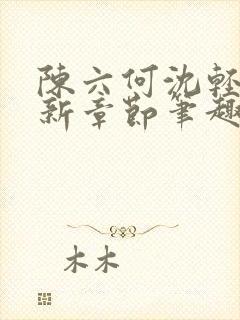 陳六何沈輕
新章節筆趣
木木